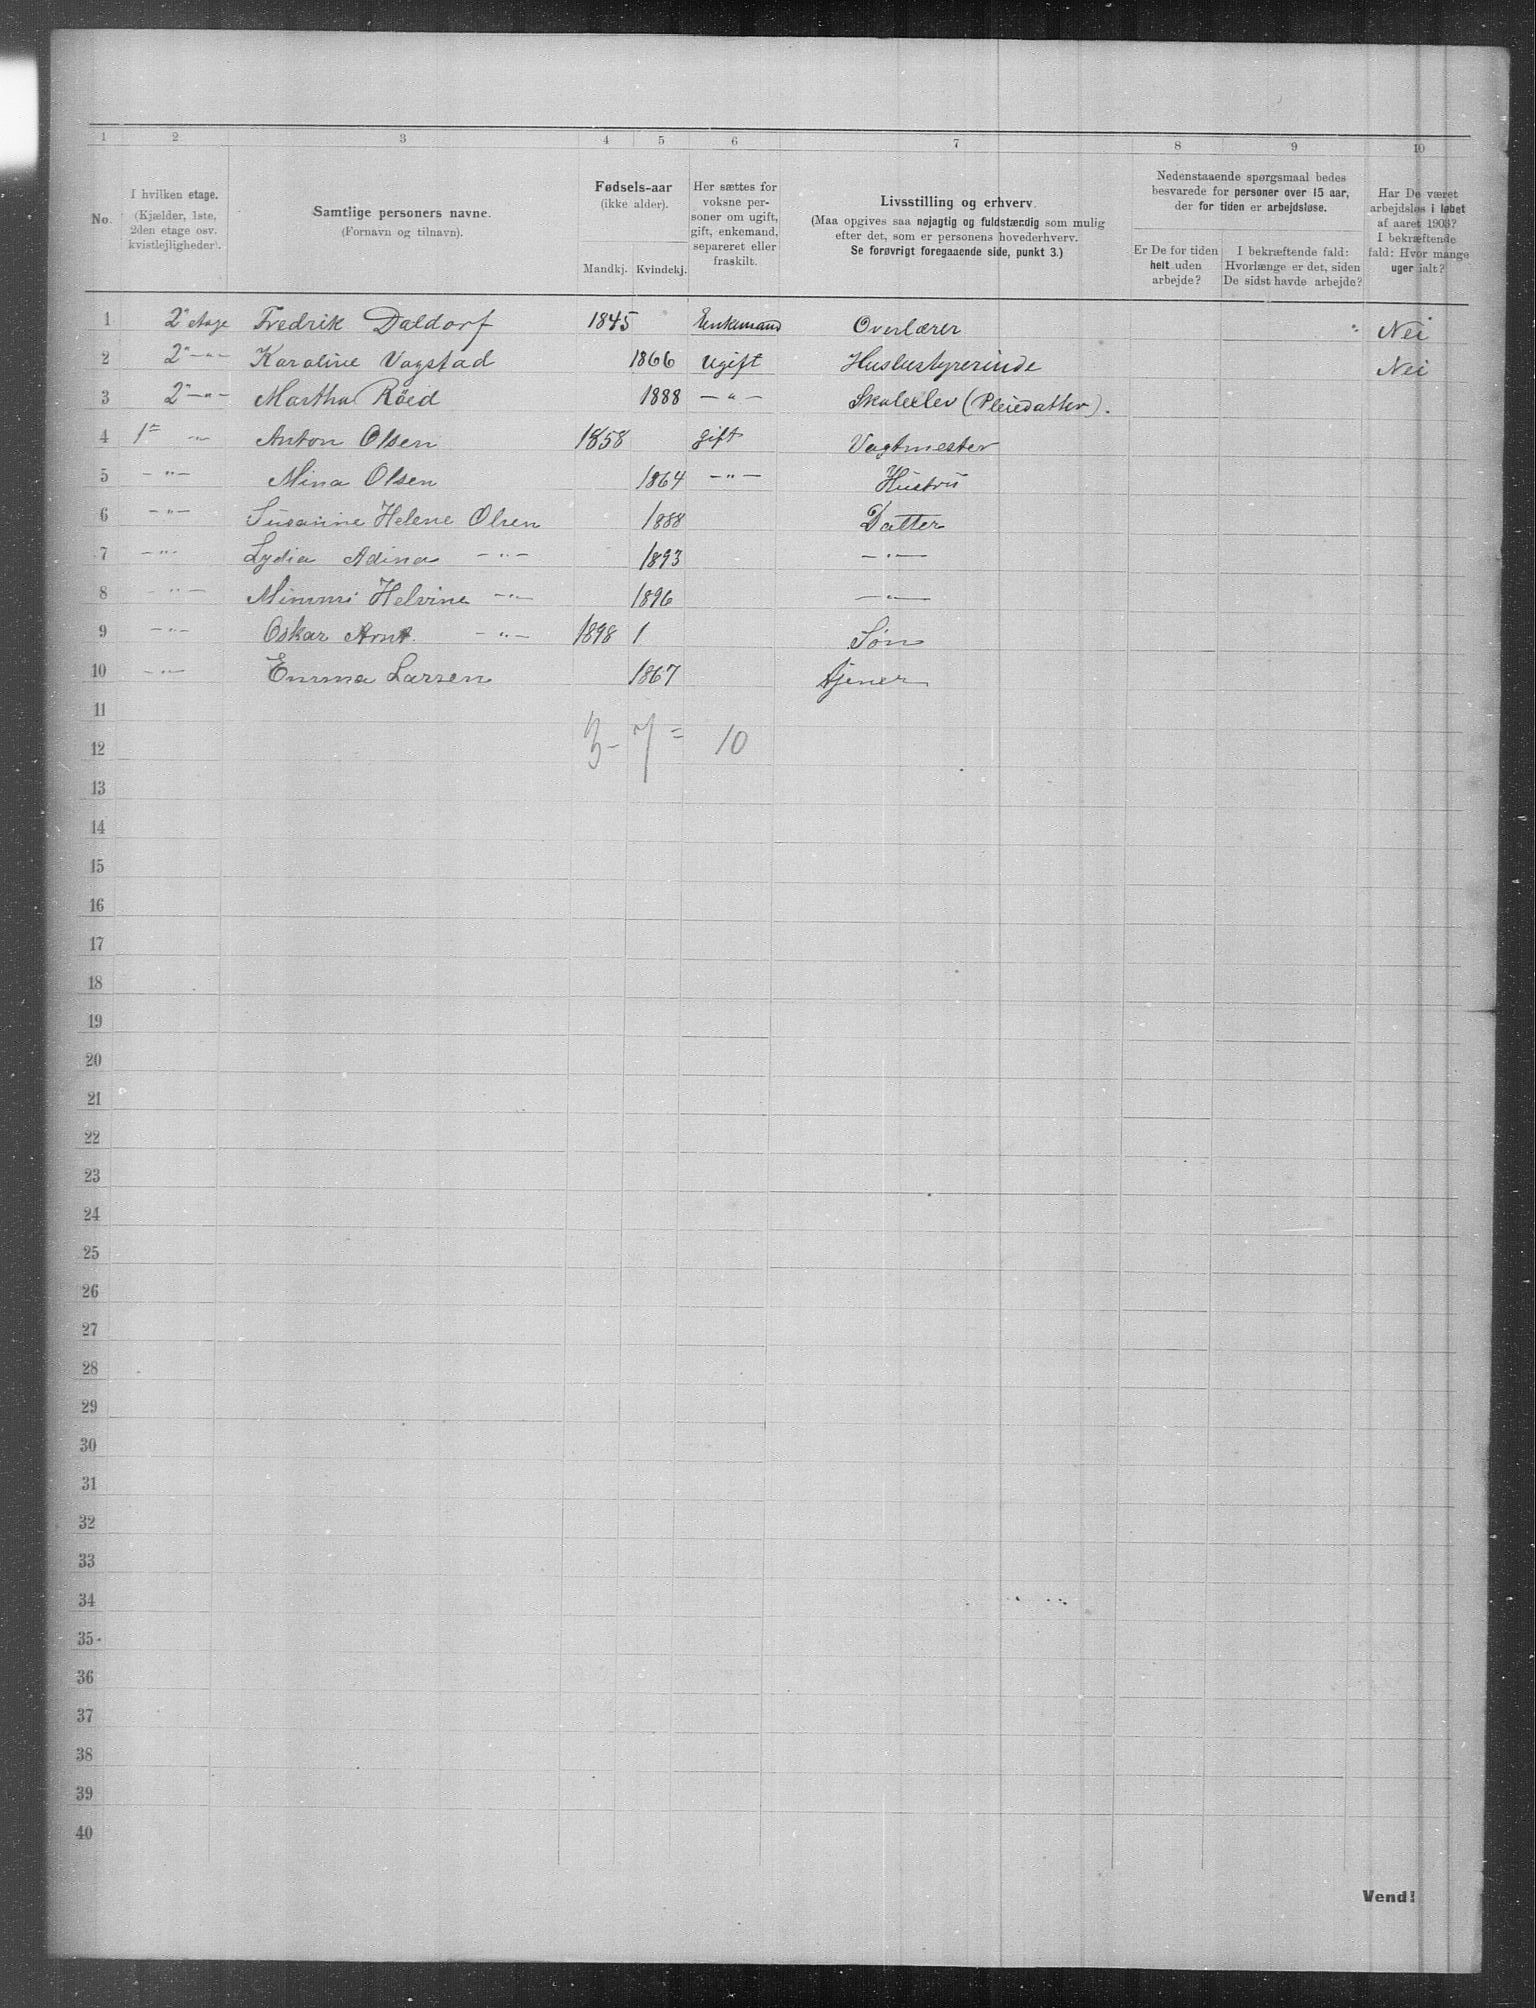 1 2 3 4 5 6 7 8 9 10
No. I hvilken etage. (Kjælder, 1ste, 2den etage osv. kvistlejligheder). Samtlige personers navne. (Fornavn og tilnavn). Fødsels-aar (ikke alder). Mandkj. Kvindekj. Her sættes for voksne personer om ugift, gift, enkemand, separeret eller fraskilt. Livsstilling og erhverv. (Maa opgives saa nøjagtig og fuldstændig som mulig efter det, som er personens hovederhverv. Se forøvrigt foregaaende side, punkt 3.) Nedenstaaende spørgsmaal bedes besvarede for personer over 15 aar, der for tiden er arbejdsløse. Er De for tiden helt uden arbejde? I bekræftende fald: Hvorlænge er det, siden De sidst havde arbejde? Har De været arbejdsløs i løbet af aaret 1903? I bekræftende fald: Hvor mange uger ialt?
1 2" etage Fredrik Daldorf 1845 Enkemand Overlærer " Nei
2 2" -"- Karoline Vagstad 1866 Ugift Husbestyrerinde Nei
3 2 -"- Martha Röed 1888 -"- Skoleelev (Pleiedatter).
4 1= -"- Anton Olsen 1858 gift Vagtmester
5 -"- Mina Olsen 1864 -"- Hustru
6 -"- Susanne Helene Olsen 1888 Datter
7 -"- Lydia Adina -"- 1893 -"-
8 -"- Mimmi Helvine -"- 1896 -"-
9 -"- Oskar Arnt. -"- 1898 1 Søn
10 -"- Emma Larsen 1867 Tjener
11
12 3 - 7 = 10
13
14
15
16
17
18
19
20
21
22
23
24
25
26
27
28
29
30
31
32
33
34
35
36
37
38
39
40
Vend!